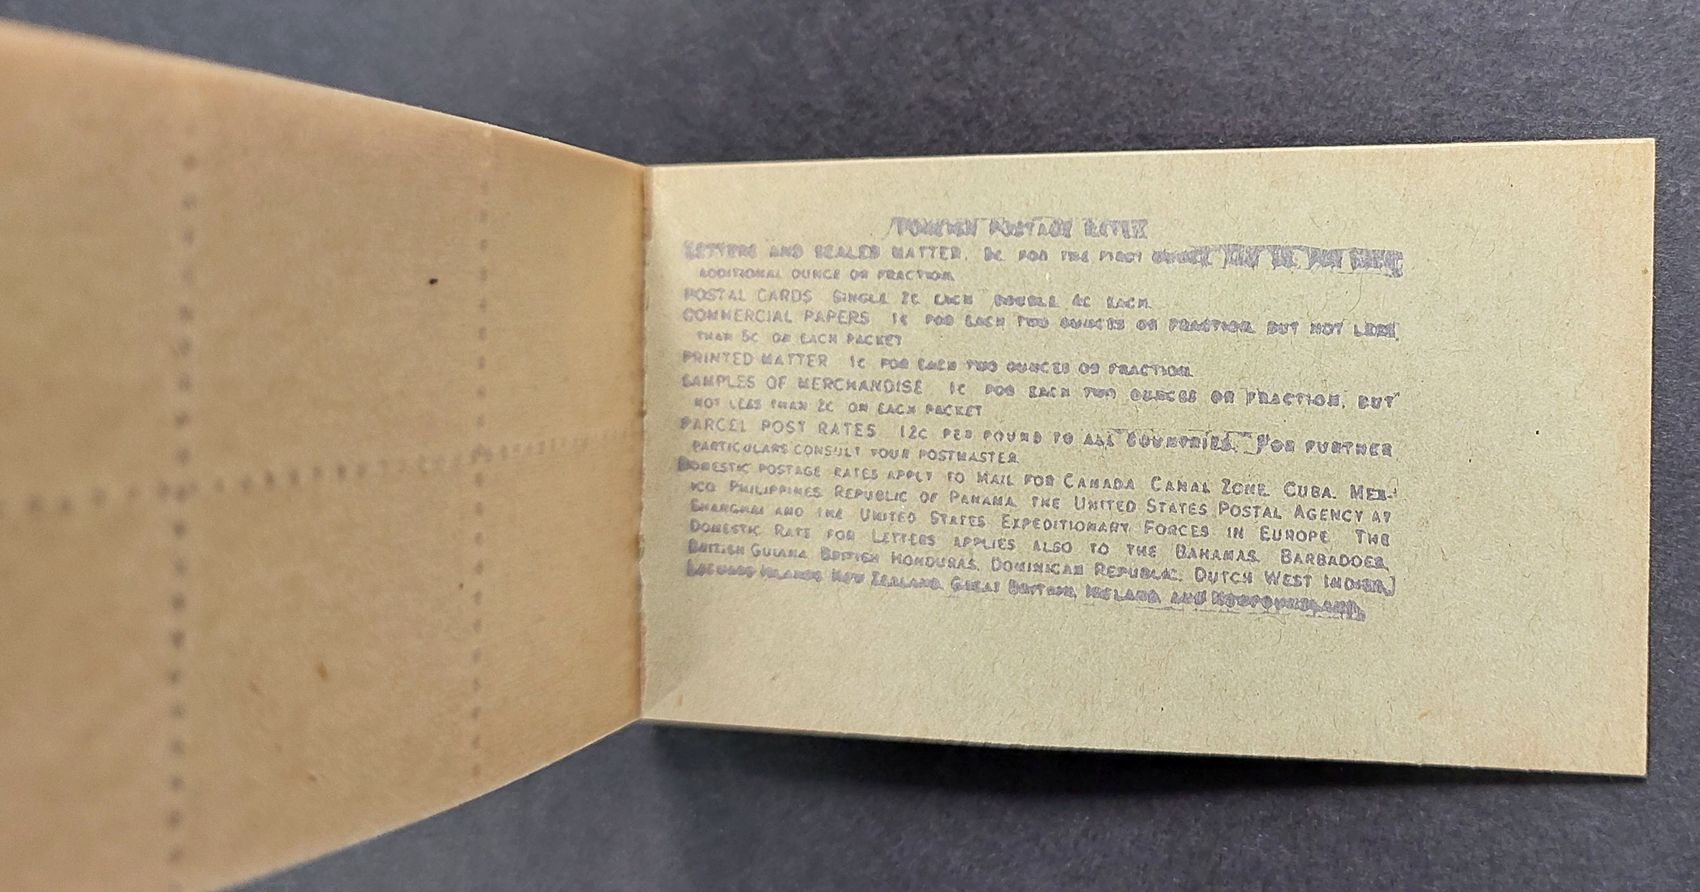 FOREIGN POSTAGE RATES
LETTERS AND SEALED MATTER, 5c FOR THE FIRST OUNCE
ADDITIONAL OUNCE OR FRACTION
POSTAL CARDS SINGLE 2c EACH DOUBLE 4c EACH
COMMERCIAL PAPERS 1c FOR EACH TWO OUNCES OR FRACTION, BUT NOT LESS
THAN 5c ON EACH PACKET
PRINTED MATTER 1c FOR EACH TWO OUNCES OR FRACTION.
SAMPLES OF MERCHANDISE 1c FOR EACH TWO OUNCES OR FRACTION, BUT
NOT LESS THAN 2c ON EACH PACKET
PARCEL POST RATES 12c PER POUND TO ALL COUNTRIES. FOR FURTHER
PARTICULARS CONSULT YOUR POSTMASTER
DOMESTIC POSTAGE RATES APPLY TO MAIL FOR CANADA CANAL ZONE. CUBA. MEX-
ICO PHILIPPINES REPUBLIC OF PANAMA, THE UNITED STATES POSTAL AGENCY AT
SHANGHAI AND THE UNITED STATES EXPEDITIONARY FORCES IN EUROPE THE
DOMESTIC RATE FOR LETTERS APPLIES ALSO TO THE BAHAMAS. BARBADOES,
BRITISH GUIANA BRITISH HONDURAS, DOMINICAN REPUBLIC, DUTCH WEST INDIES,
LEEWARD ISLANDS NEW ZEALAND, GREAT BRITAIN, IRELAND AND NEWFOUNDLAND.